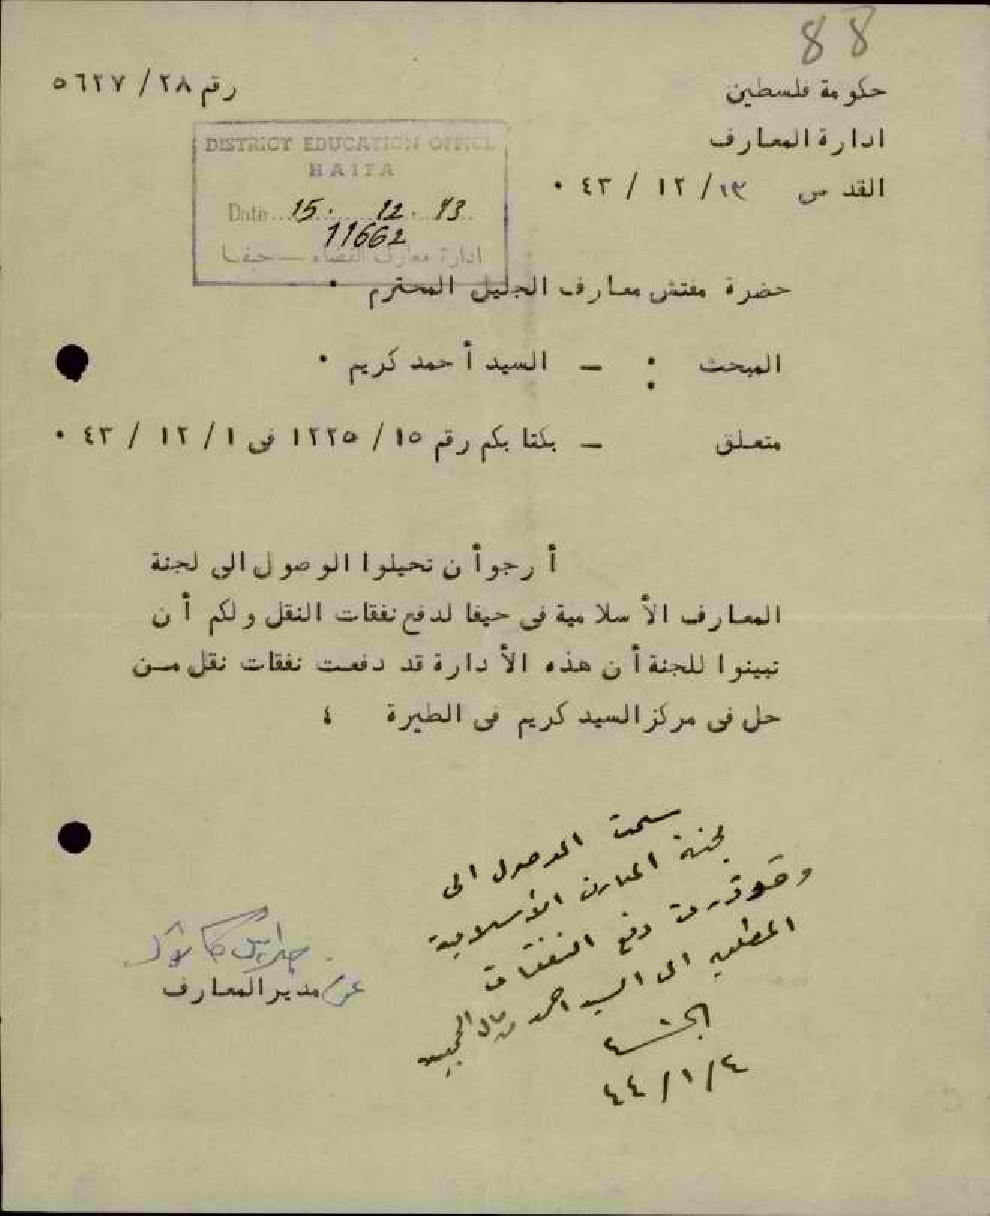 88
حكومة فلسطين
رقم ٢٨/ ٥٦٢٧
ادارة المعارف
القدس ١٣/ ١٢ / ٤٣ ٠
DISTRICT EDUCATION OFFICE
HAIFA
Date 15. 12. 43
11662
ادارة معارف القضاء — حيفا
حضرة مفتش معارف الجليل المحترم ٠
المبحث : — السيد أحمد كريم ٠
متعلق — بكتابكم رقم ١٥/ ١٢٢٥ فى ١/ ١٢ / ٤٣ ٠
أرجو أن تحيلوا الوصول الى لجنة
المعارف الأسلامية فى حيفا لدفع نفقات النقل ولكم أن
تبينوا للجنة أن هذه الأدارة قد دفعت نفقات نقل من
حل فى مركز السيد كريم فى الطيرة ٤
سلمت الوصول الى
لجنة المعارف الأسلامية
وقد قررت دفع النفقات
المطلوبه الى السيد احمد
٤/ ١/ ٤٤
عن مدير المعارف